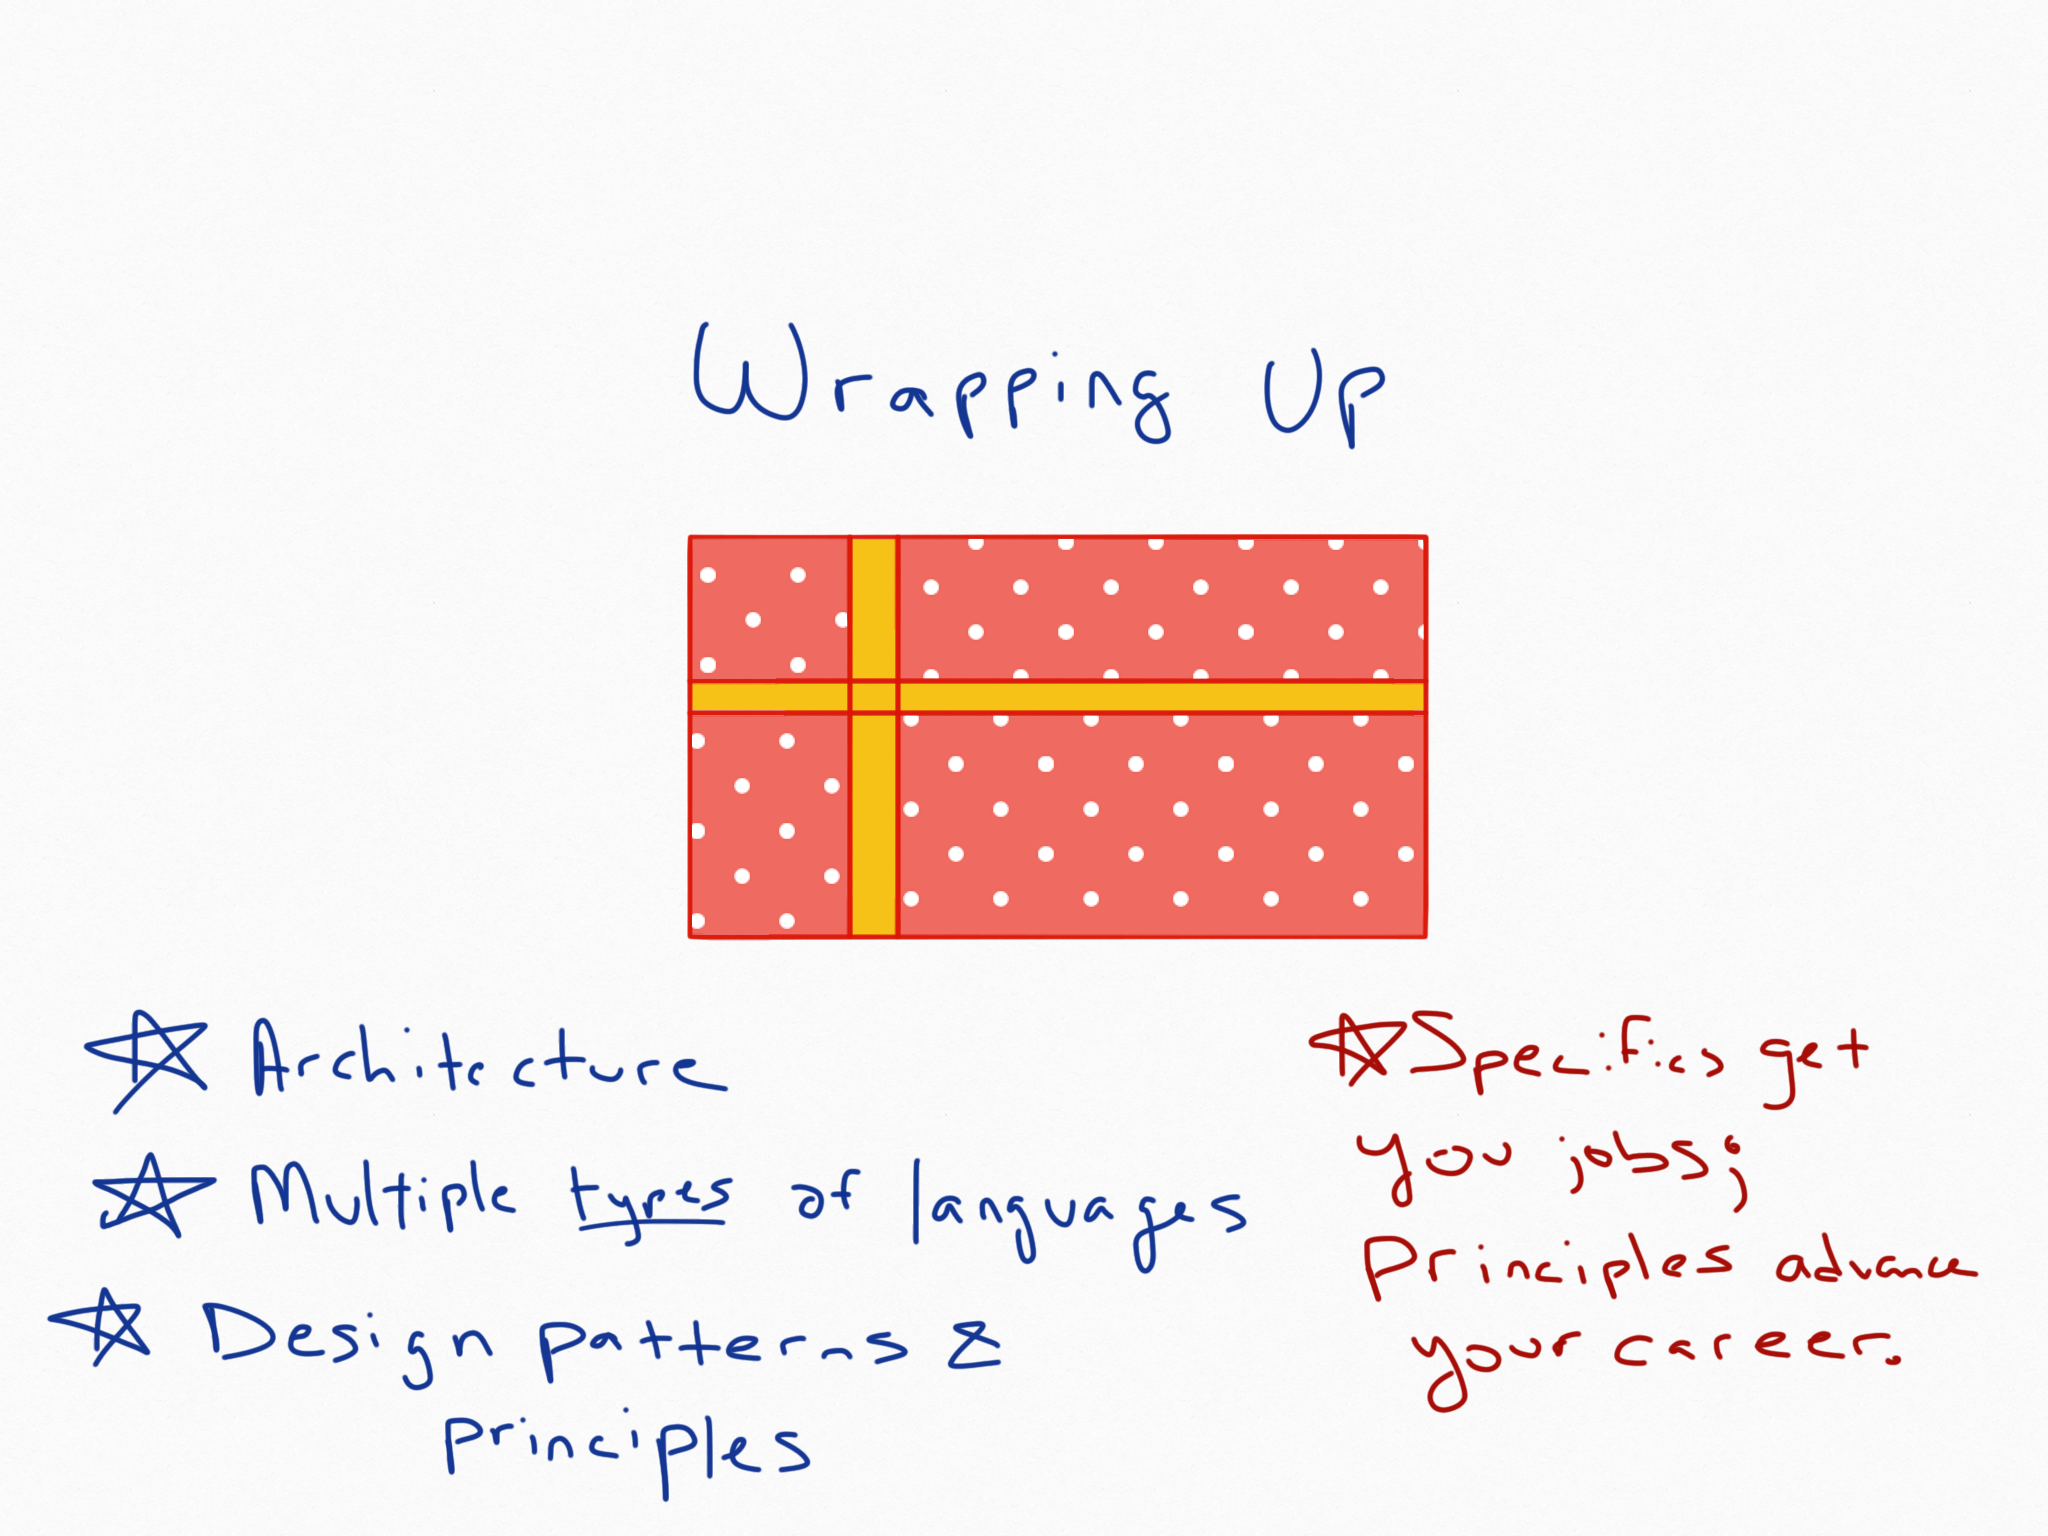 Wrapping Up
Architecture
Multiple types of languages
Design patterns &
principles
Specifics get
you jobs;
Principles advance
your career.